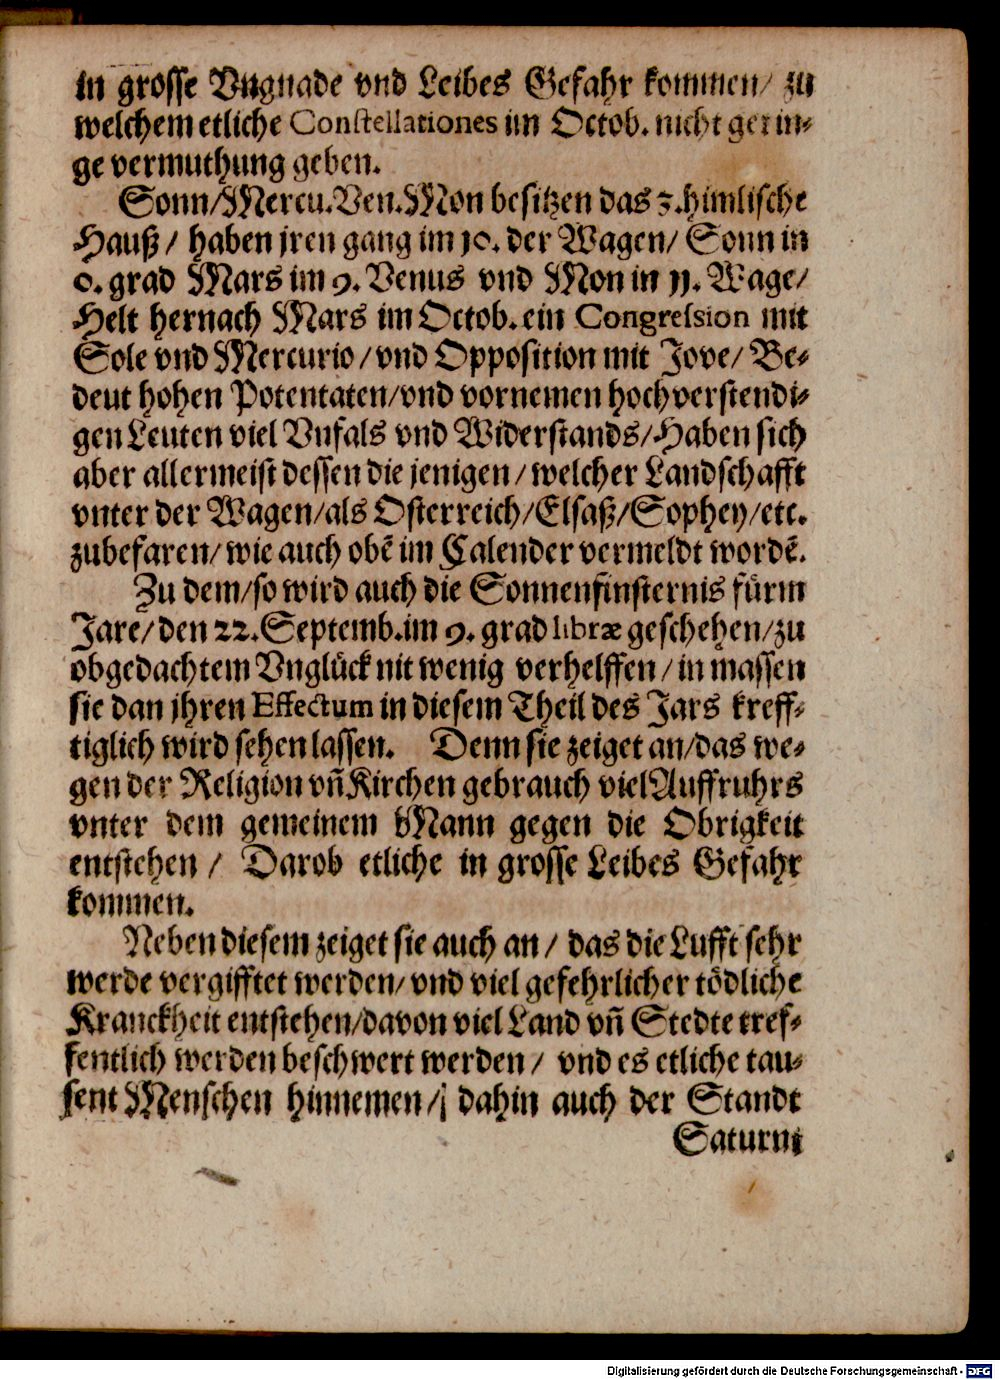 in grosse Vngnade vnd Leibes Gefahr kommen/ zu
welchem etliche Constellationes im Octob. nicht gerin-
ge vermuthung geben.
Sonn/Mercu.Ven.Mon besitzen das 7.himlische
Hauß / haben jren gang im 10. der Wagen/ Sonn in
0. grad Mars im 9. Venus vnd Mon in 11. Wage/
Helt hernach Mars im Octob. ein Congression mit
Sole vnd Mercurio/vnd Opposition mit Jove/ Be-
deut hohen Potentaten/vnd vornemen hochverstendi-
gen Leuten viel Vnfals vnd Widerstands/Haben sich
aber allermeist dessen die jenigen/ welcher Landschafft
vnter der Wagen/als Osterreich/Elsaß/Sophey/etc.
zubefaren/ wie auch obē im Calender vermeldt wordē.
Zu dem/so wird auch die Sonnenfinsternis fürm
Jare/den 22.Septemb.im 9. grad libræ geschehen/zu
obgedachtem Vnglück nit wenig verhelffen/ in massen
sie dan jhren Effectum in diesem Theil des Jars kreff-
tiglich wird sehen lassen. Denn sie zeiget an/das we-
gen der Religion vñ Kirchen gebrauch viel Auffruhrs
vnter dem gemeinem Mann gegen die Obrigkeit
entstehen / Darob etliche in grosse Leibes Gefahr
kommen.
Neben diesem zeiget sie auch an / das die Lufft sehr
werde vergifftet werden/ vnd viel gefehrlicher tödliche
Kranckheit entstehen/davon viel Land vñ Stedte tref-
fentlich werden beschwert werden / vnd es etliche tau-
sent Menschen hinnemen/ dahin auch der Standt
Saturni
Digitalisierung gefördert durch die Deutsche Forschungsgemeinschaft - DFG